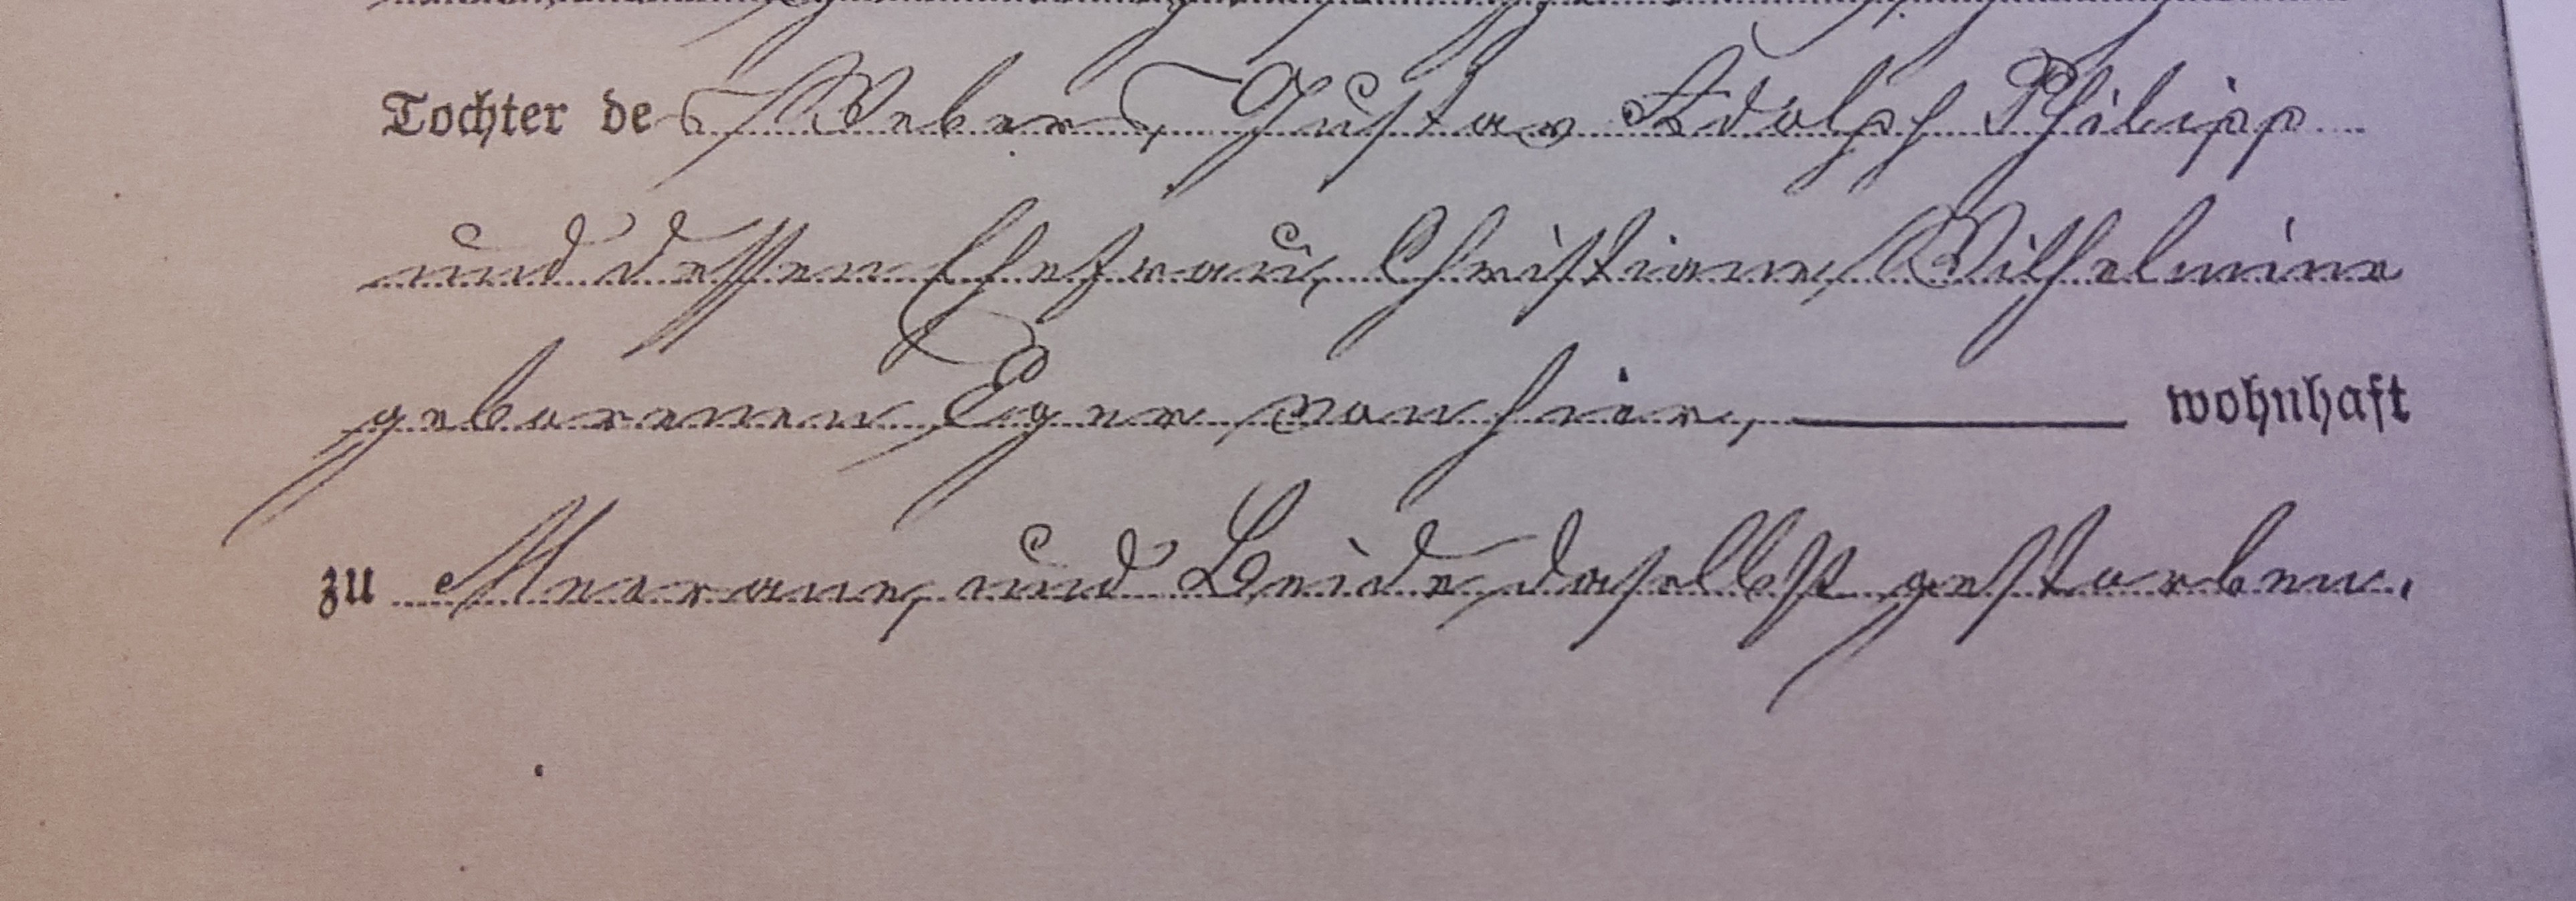 Tochter des Webers, Gustav Adolph Philipp
und dessen Ehefrau, Christiane, Wilhelmine
geborenen Eger von hier, wohnhaft
zu Meerane, und Beide daselbst gestorben.